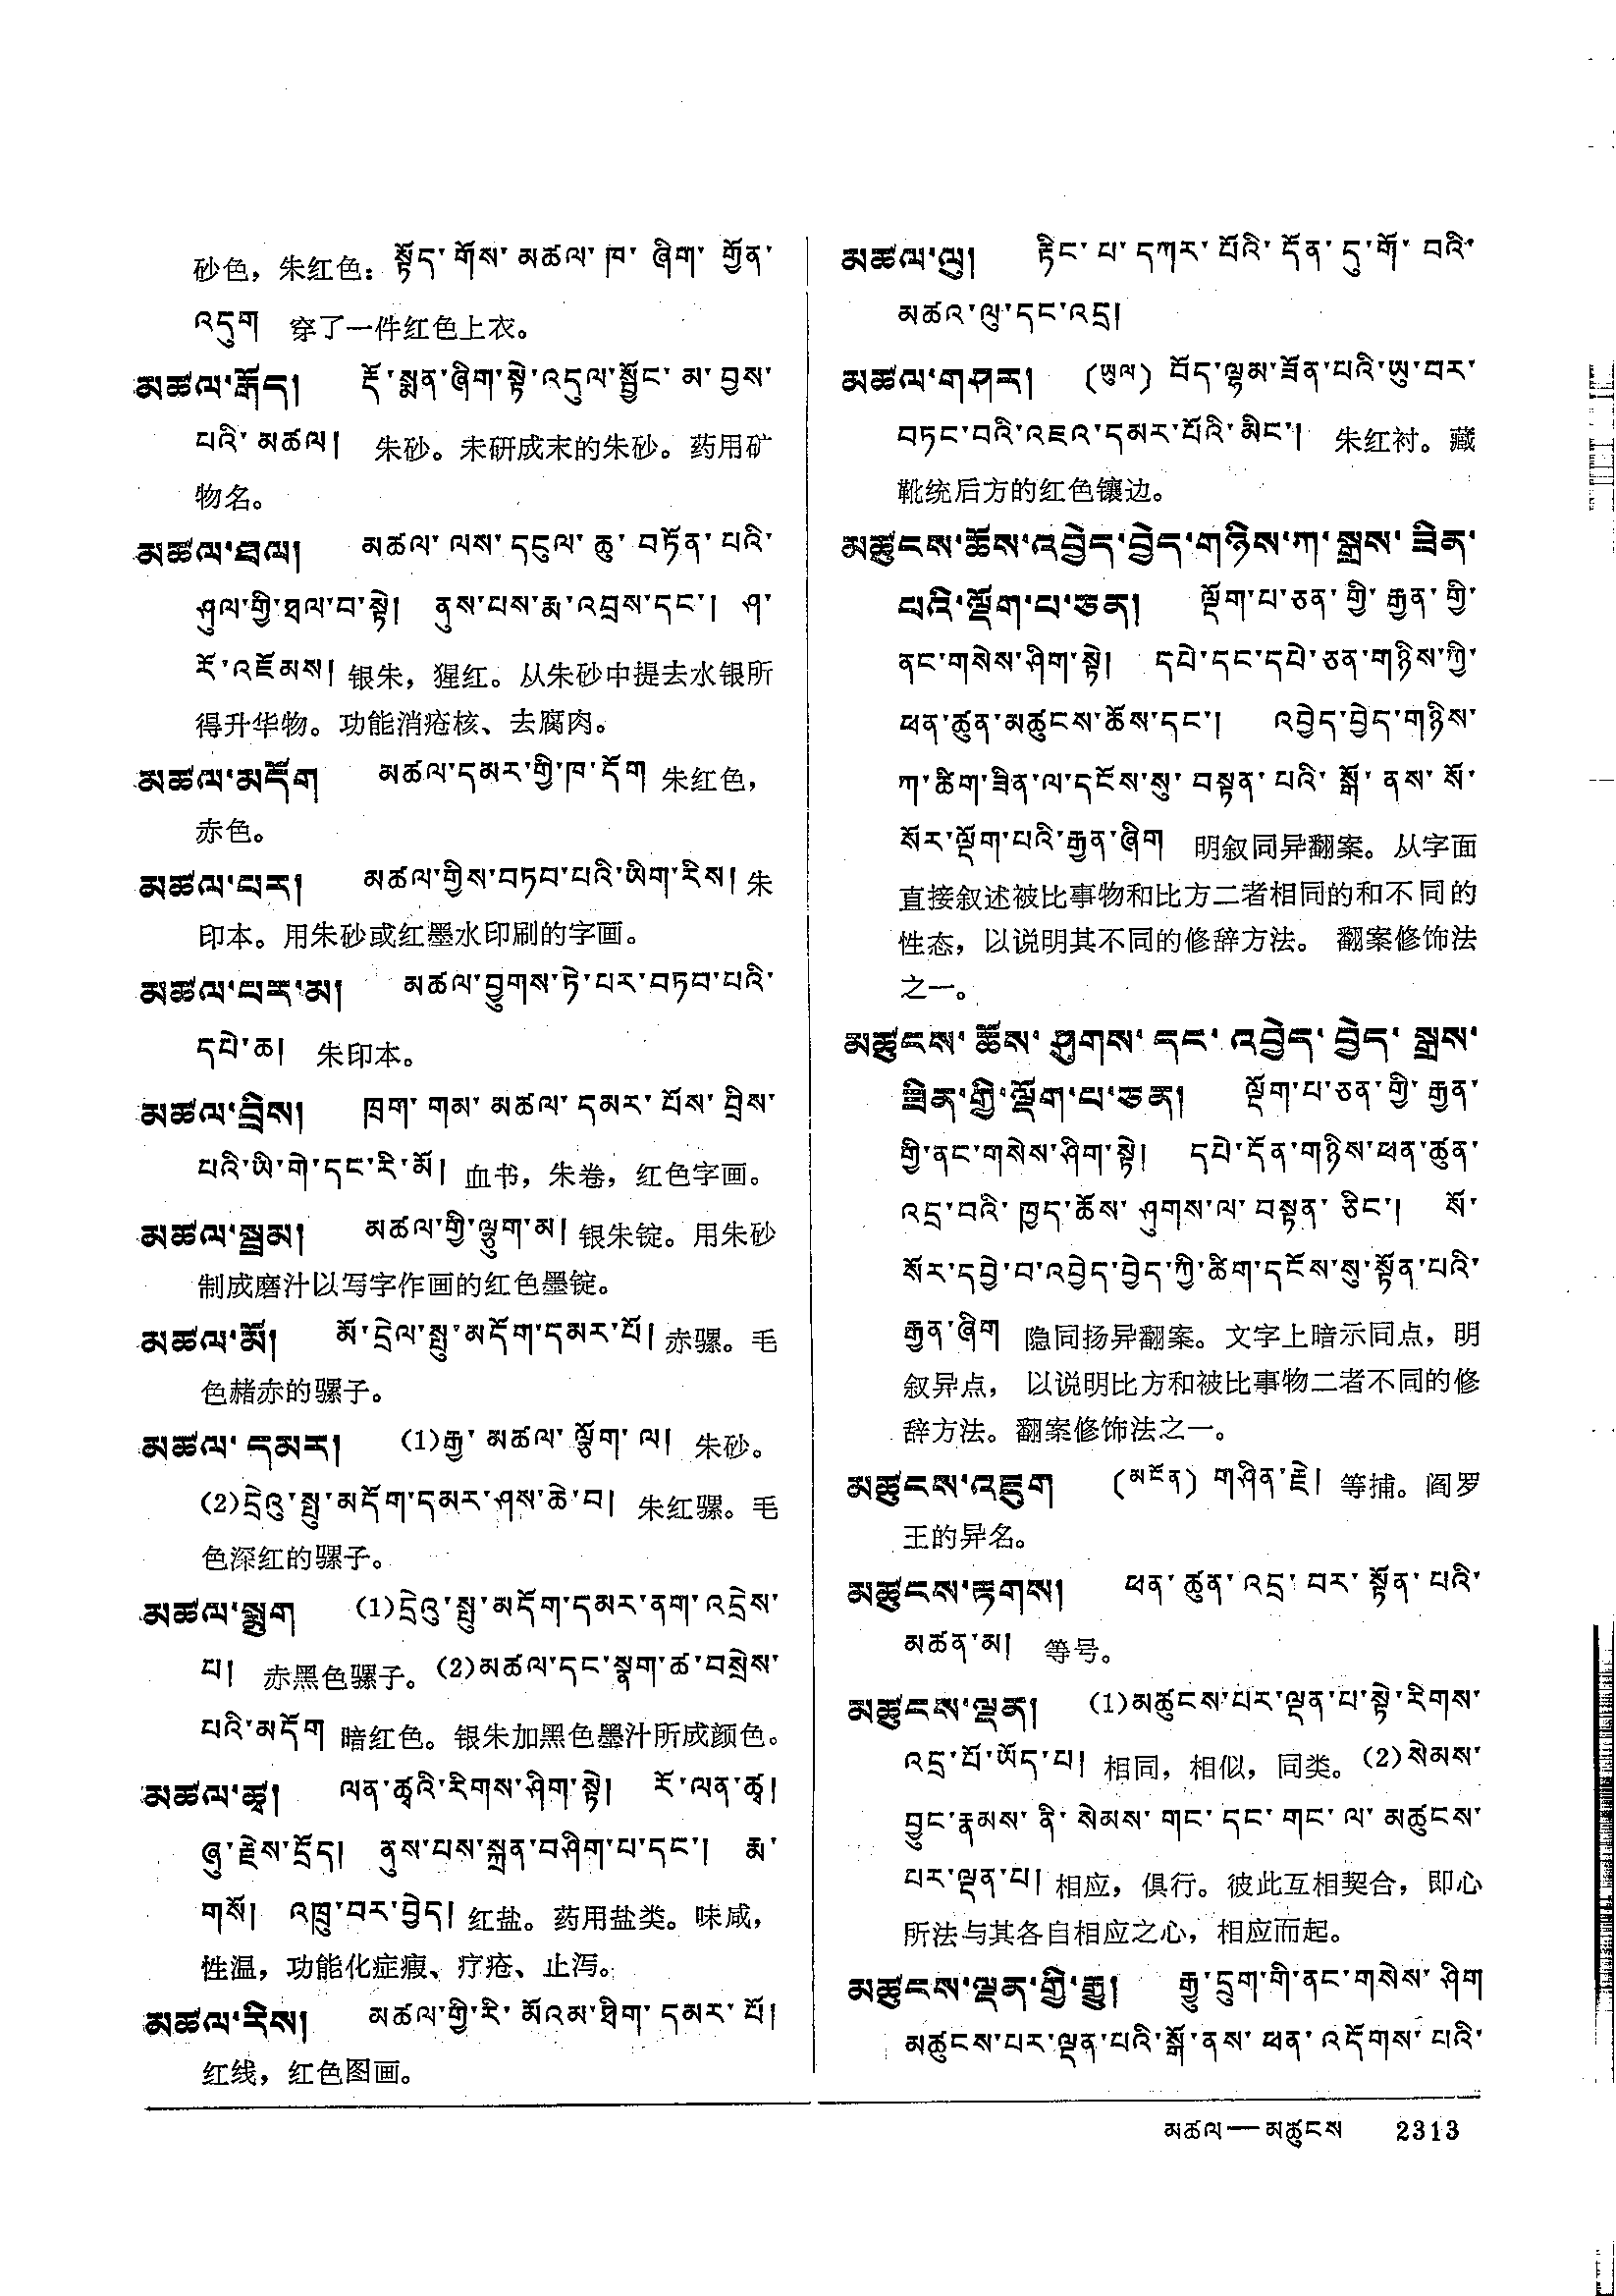 砂色，朱红色：སྟོད་གོས་མཚལ་ཁ་ཞིག་གྱོན་
འདུག 穿了一件红色上衣。
མཚལ་རྒོད། རྡོ་སྨན་ཞིག་སྟེ་འདུལ་སྦྱོང་མ་བྱས་
པའི་མཚལ། 朱砂。未研成末的朱砂。药用矿
物名。
མཚལ་ཐལ། མཚལ་ལས་དངུལ་ཆུ་བཏོན་པའི་
ཤུལ་གྱི་ཐལ་བ་སྟེ། ནུས་པས་རྨ་འབྲས་དང་། ཤ་
རོ་འཇོམས། 银朱，猩红。从朱砂中提去水银所
得升华物。功能消疮核、去腐肉。
མཚལ་མདོག མཚལ་དམར་གྱི་ཁ་དོག 朱红色，
赤色。
མཚལ་པར། མཚལ་གྱིས་བཏབ་པའི་ཡིག་རིས། 朱
印本。用朱砂或红墨水印刷的字画。
མཚལ་པར་མ། མཚལ་བྱུགས་ཏེ་པར་བཏབ་པའི་
དཔེ་ཆ། 朱印本。
མཚལ་བྲིས། ཁྲག་གམ་མཚལ་དམར་པོས་བྲིས་
པའི་ཡི་གེ་དང་རི་མོ། 血书，朱卷，红色字画。
མཚལ་སྦྲམ། མཚལ་གྱི་ལྷུག་མ། 银朱锭。用朱砂
制成磨汁以写字作画的红色墨锭。
མཚལ་མོ། མོ་དྲེལ་སྤུ་མདོག་དམར་པོ། 赤骡。毛
色赭赤的骡子。
མཚལ་དམར། (1)རྒྱ་མཚལ་ལྕོག་ལ། 朱砂。
(2)དྲེའུ་སྤུ་མདོག་དམར་ཤས་ཆེ་བ། 朱红骡。毛
色深红的骡子。
མཚལ་སྨུག (1)དྲེའུ་སྤུ་མདོག་དམར་ནག་འདྲེས་
པ། 赤黑色骡子。(2)མཚལ་དང་སྣག་ཚ་བསྲེས་
པའི་མདོག 暗红色。银朱加黑色墨汁所成颜色。
མཚལ་ཚྭ། ལན་ཚྭའི་རིགས་ཤིག་སྟེ། རོ་ལན་ཚྭ།
ཞུ་རྗེས་དྲོད། ནུས་པས་སྐྲན་བཤིག་པ་དང་། རྨ་
གསོ། འཁྲུ་བར་བྱེད། 红盐。药用盐类。味咸，
性温，功能化症瘕、疗疮、止泻。
མཚལ་རིས། མཚལ་གྱི་རི་མོའམ་ཐིག་དམར་པོ།
红线，红色图画。
མཚལ་ལུ། རྟིང་པ་དཀར་པོའི་དོན་དུ་གོ་བའི་
མཚའ་ལུ་དང་འདྲ།
མཚལ་གཤར། (ཡུལ) བོད་ལྷམ་ཟོན་པའི་ཡུ་བར་
བཏང་བའི་འཇའ་དམར་པོའི་མིང་། 朱红衬。藏
靴统后方的红色镶边。
མཚུངས་ཆོས་འབྱེད་བྱེད་གཉིས་ཀ་སྒྲས་ཟིན་
པའི་ལྡོག་པ་ཅན། ལྡོག་པ་ཅན་གྱི་རྒྱན་གྱི་
ནང་གསེས་ཤིག་སྟེ། དཔེ་དང་དཔེ་ཅན་གཉིས་ཀྱི་
ཕན་ཚུན་མཚུངས་ཆོས་དང་། འབྱེད་བྱེད་གཉིས་
ཀ་ཚིག་ཟིན་ལ་དངོས་སུ་བསྟན་པའི་སྒོ་ནས་སོ་
སོར་ལྡོག་པའི་རྒྱན་ཞིག 明叙同异翻案。从字面
直接叙述被比事物和比方二者相同的和不同的
性态，以说明其不同的修辞方法。翻案修饰法
之一。
མཚུངས་ཆོས་ཤུགས་དང་འབྱེད་བྱེད་སྒྲས་
ཟིན་གྱི་ལྡོག་པ་ཅན། ལྡོག་པ་ཅན་གྱི་རྒྱན་
གྱི་ནང་གསེས་ཤིག་སྟེ། དཔེ་དོན་གཉིས་ཕན་ཚུན་
འདྲ་བའི་ཁྱད་ཆོས་ཤུགས་ལ་བསྟན་ཅིང་། སོ་
སོར་དབྱེ་བ་འབྱེད་བྱེད་ཀྱི་ཚིག་དངོས་སུ་སྟོན་པའི་
རྒྱན་ཞིག 隐同扬异翻案。文字上暗示同点，明
叙异点，以说明比方和被比事物二者不同的修
辞方法。翻案修饰法之一。
མཚུངས་འཇུག (མངོན) གཤིན་རྗེ། 等捕。阎罗
王的异名。
མཚུངས་རྟགས། ཕན་ཚུན་འདྲ་བར་སྟོན་པའི་
མཚན་མ། 等号。
མཚུངས་ལྡན། (1)མཚུངས་པར་ལྡན་པ་སྟེ་རིགས་
འདྲ་པོ་ཡོད་པ། 相同，相似，同类。(2)སེམས་
བྱུང་རྣམས་ནི་སེམས་གང་དང་གང་ལ་མཚུངས་
པར་ལྡན་པ། 相应，俱行。彼此互相契合，即心
所法与其各自相应之心，相应而起。
མཚུངས་ལྡན་གྱི་རྒྱུ། རྒྱུ་དྲུག་གི་ནང་གསེས་ཤིག
མཚུངས་པར་ལྡན་པའི་སྒོ་ནས་ཕན་འདོགས་པའི་
མཚལ—མཚུངས 2313